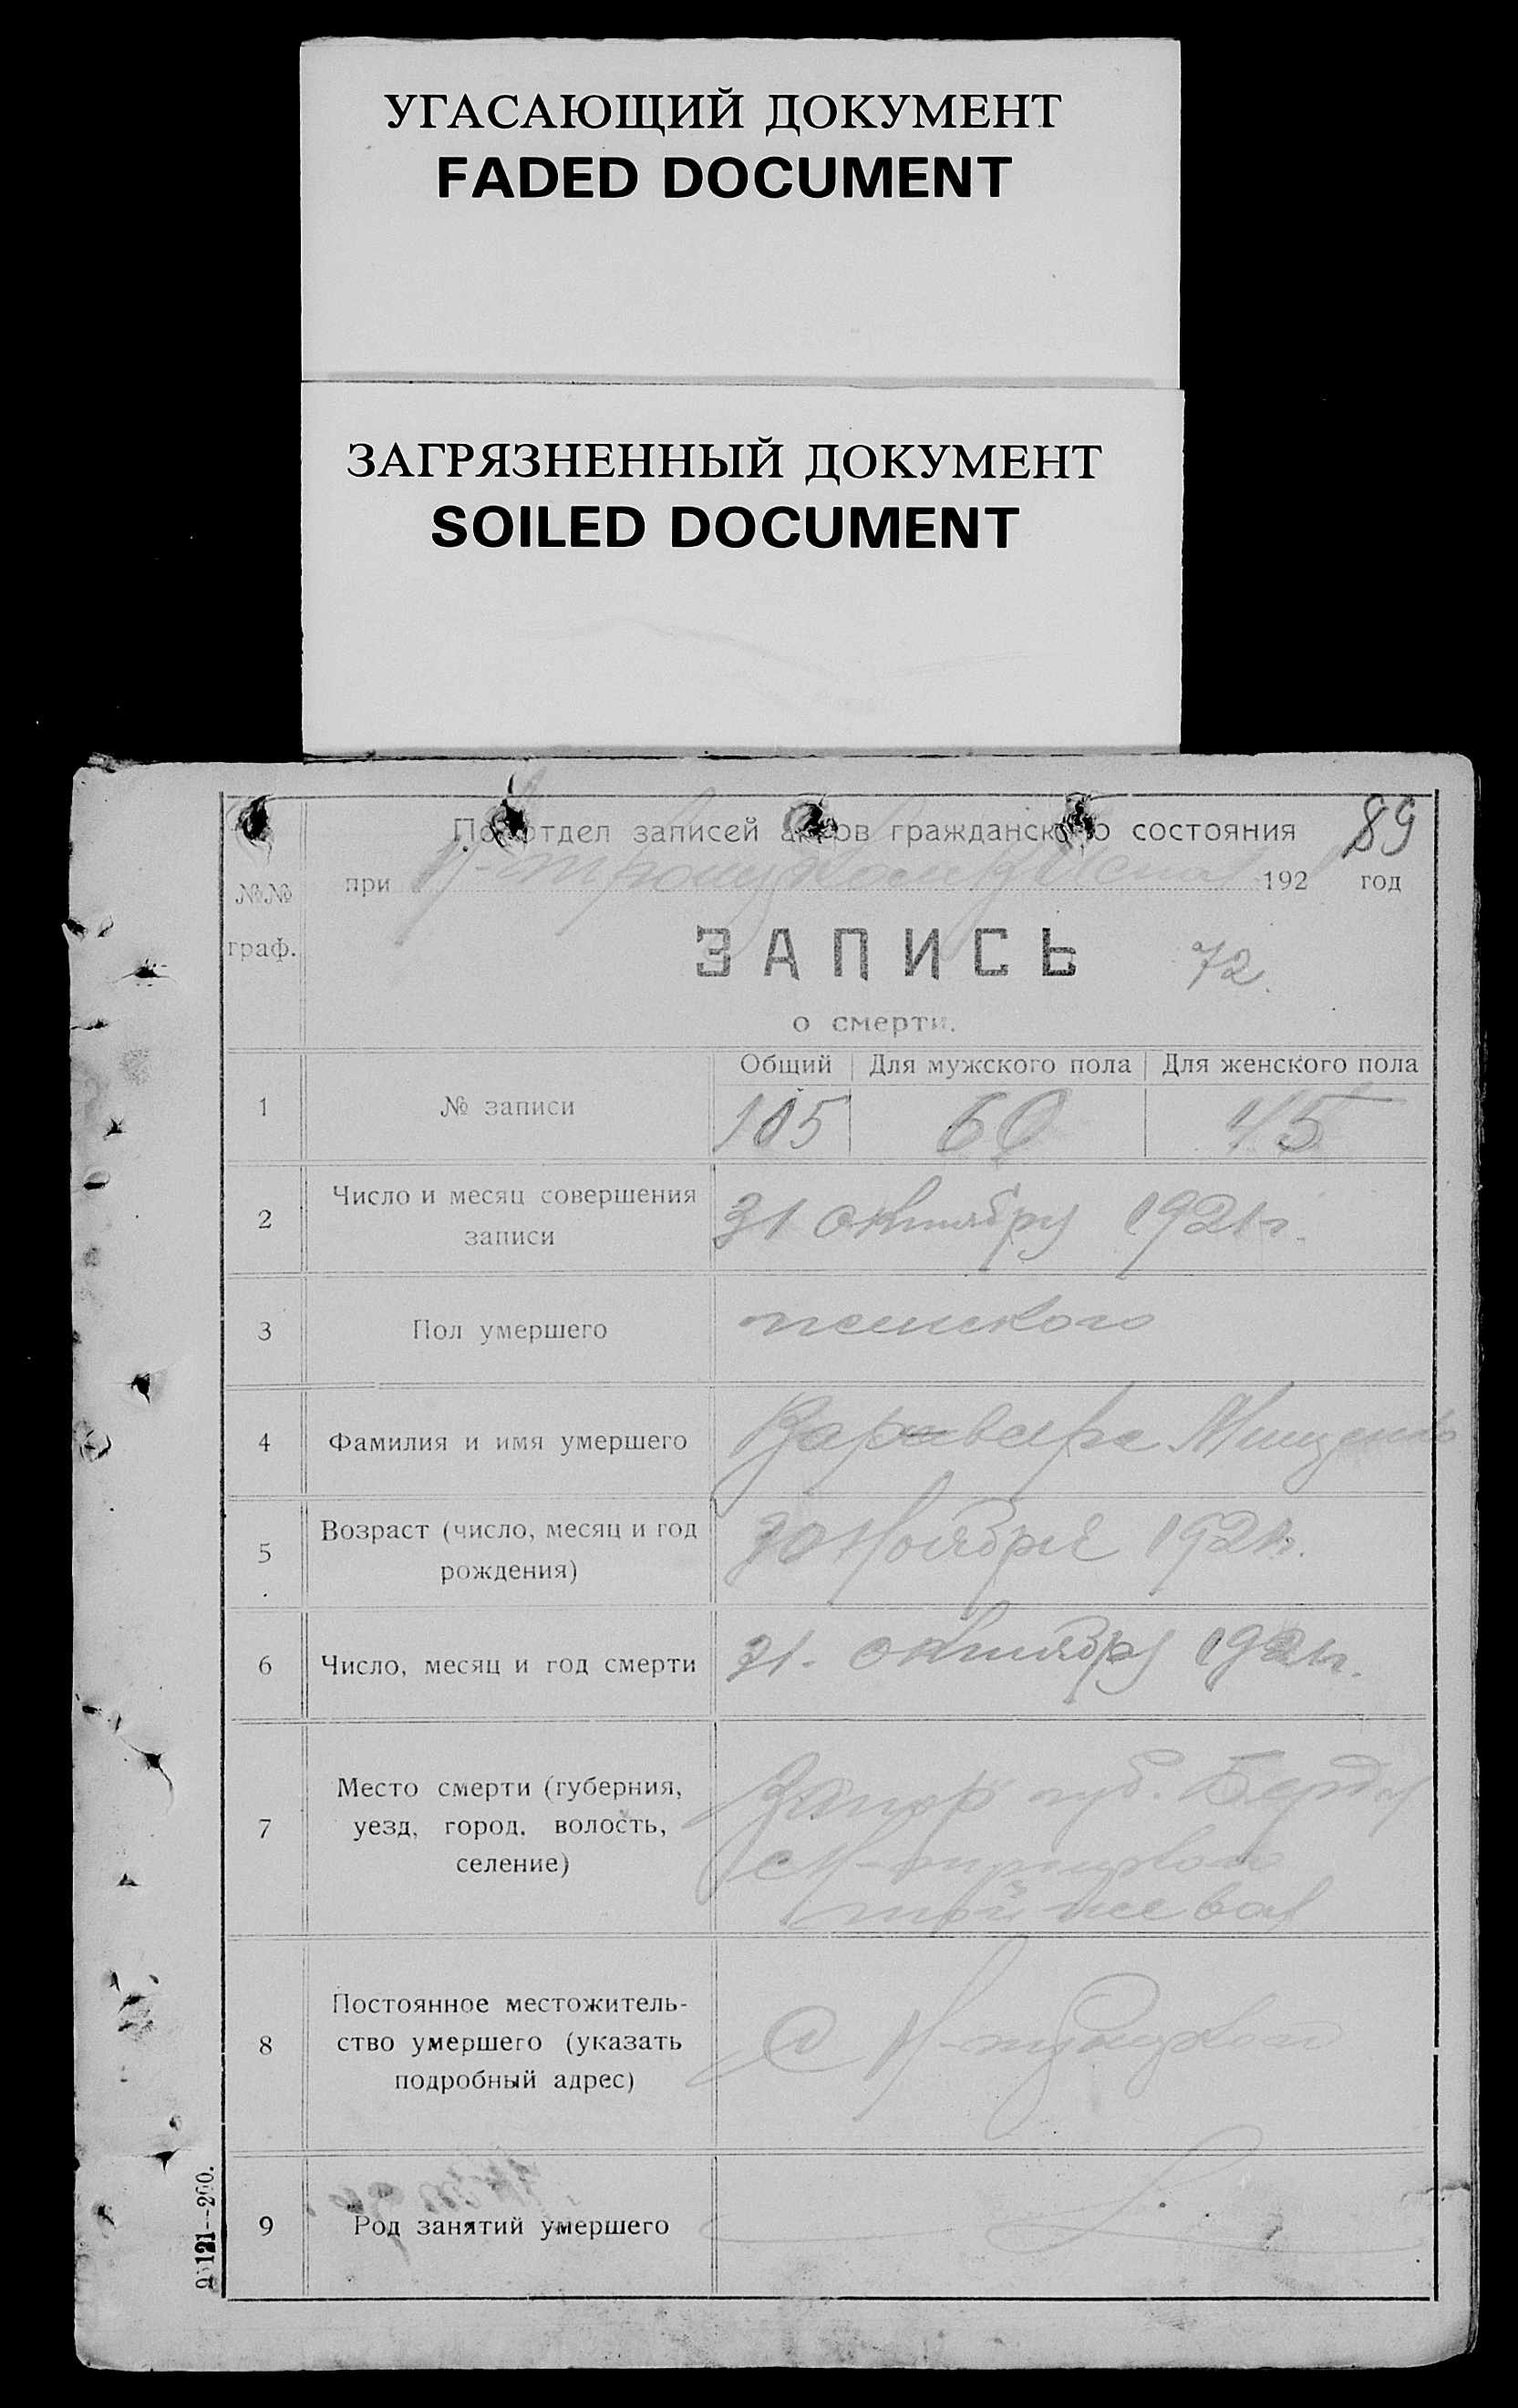 УГАСАЮЩИЙ ДОКУМЕНТ
FADED DOCUMENT
ЗАГРЯЗНЕННЫЙ ДОКУМЕНТ
SOILED DOCUMENT
Подотдел записей актов гражданского состояния 89
№№ при 192 год
граф.
ЗАПИСЬ 72.
о смерти.
Общий Для мужского пола Для женского пола
1 № записи 105 60 45
Число и месяц совершения
2 записи 31 октября 1921 г.
3 Пол умершего женского
4 Фамилия и имя умершего Мищенко
Возраст (число, месяц и год
5 рождения) Ноября 192
6 Число, месяц и год смерти 31. октября 1921 г.
Место смерти (губерния, Запор губ. Бердя
7 уезд, город, волость,
селение) той же вол
Постоянное местожитель-
8 ство умершего (указать С
подробный адрес)
9 Род занятий умершего